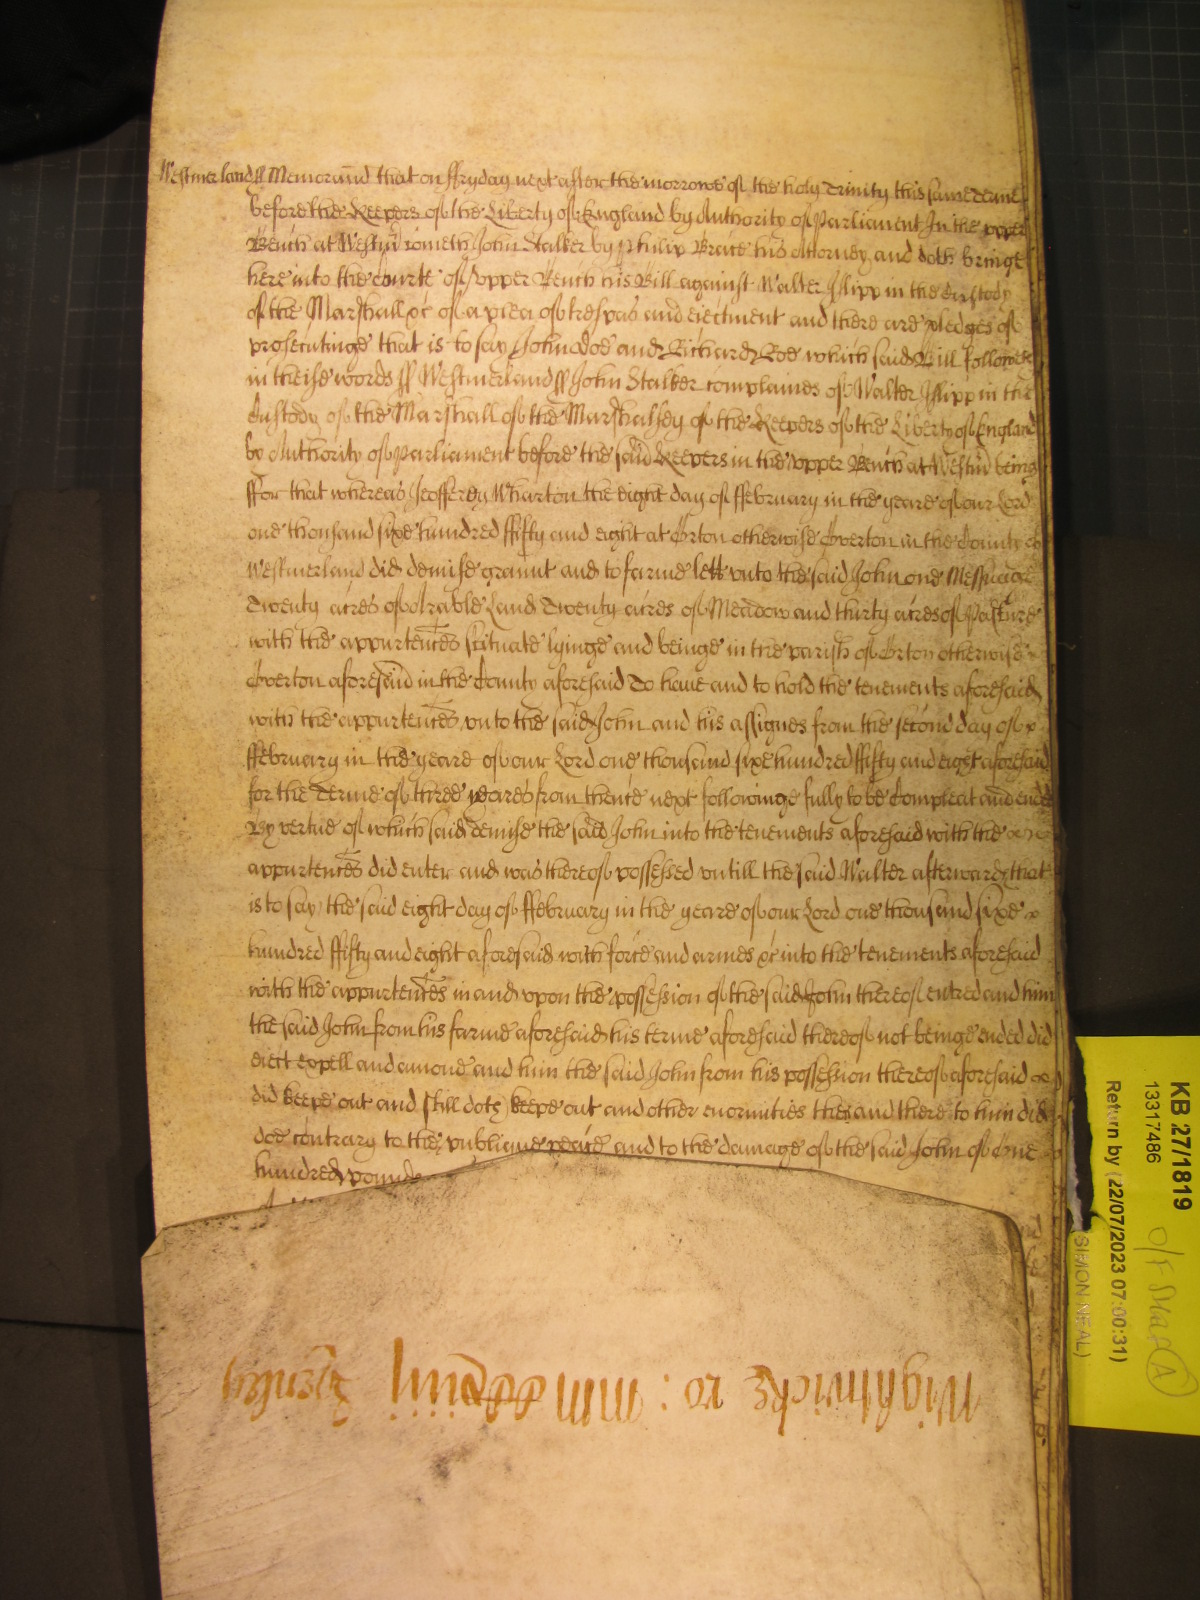 Westmerland ss Memorand that on ffryday next after the morrowe of the holy Trinity this same terme
before the Keepers of the Liberty of England by Authority of Parliament In the upper
Bench at Westm cometh John Stalker by Philip Brate his Attorney and doth bringe
here into the courte of upper Bench his Bill against Walter Islipp in the Custody
of the Marshall &c of a plea of trespas and eiectment and there are pledges of
prosecutinge that is to say John Doe and Richard Roe which said Bill followeth
in theise words ss Westmerland ss John Stalker complaines of Walter Islipp in the
Custody of the Marshall of the Marshalsey of the Keepers of the Liberty of England
by Authority of Parliament before the said Keepers in the upper Bench at Westm being
ffor that whereas Jeofferey Wharton the eight day of ffebruary in the yeare of our Lord
one thousand sixe hundred ffifty and eight at Orton otherwise Overton in the County of
Westmerland did demise graunt and to farme lett unto the said John one Messuage
Twenty acres of Arable Land Twenty acres of Meadow and thirty acres of Pasture
with the appurtences scituate lyinge and beinge in the parish of Orton otherwise
Overton aforesaid in the County aforesaid To have and to hold the tenements aforesaid
with the appurtences unto the said John and his assignes from the second day of
ffebruary in the yeare of our Lord one thousand sixe hundred ffifty and eight aforesaid
for the Terme of three yeares from thence next followinge fully to be Compleat and ended
By vertue of which said demise the said John into the tenements aforesaid with the
appurtences did enter and was thereof possessed untill the said Walter afterwards that
is to say the said eight day of ffebruary in the yeare of our Lord one thousand sixe
hundred ffifty and eight aforesaid with force and armes &c into the tenements aforesaid
with the appurtences in and upon the possession of the said John thereof entred and him
the said John from his farme aforesaid his terme aforesaid thereof not beinge ended did
eiect expell and amove and him the said John from his possession thereof aforesaid
did keepe out and still doth keepe out and other enormities then and there to him did
doe contrary to the publique peace and to the damage of the said John of One
hundred pounds
Wightwicke ro:
KB 27/1819
13317486
Return by (22/07/2023 07:00:31)
SIMON NEAL)
A